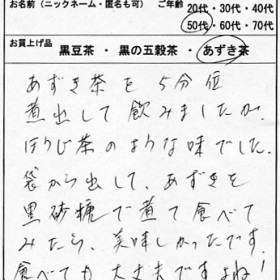 お名前(ニックネーム・匿名も可) ご年齢
20代・30代・40代
50代・60代・70代
お買上げ品
黒豆茶 ・ 黒の五穀茶 ・ あずき茶
あずき茶を5分位
煮出して飲みましたが、
ほうじ茶のような味でした。
袋から出して、あずきを
黒砂糖で煮て食べて
みたら、美味しかったです。
食べても大丈夫ですよね!